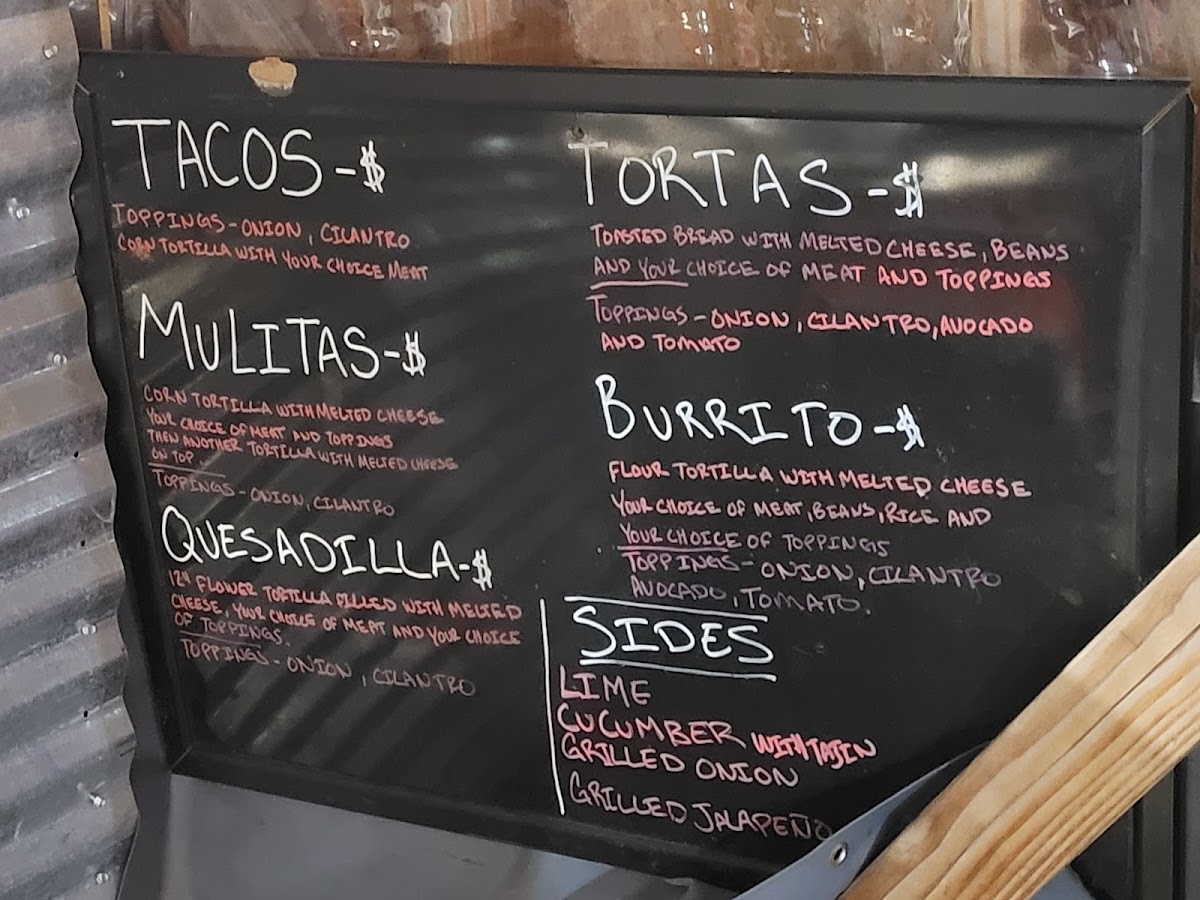 TACOS-$
TOPPINGS-ONION, CILANTRO
CORN TORTILLA WITH YOUR CHOICE MEAT
MULITAS-$
CORN TORTILLA WITH MELTED CHEESE
YOUR CHOICE OF MEAT AND TOPPINGS
THEN ANOTHER TORTILLA WITH MELTED CHEESE
ON TOP
TOPPINGS-ONION, CILANTRO
QUESADILLA-$
12" FLOWER TORTILLA FILLED WITH MELTED
CHEESE, YOUR CHOICE OF MEAT AND YOUR CHOICE
OF TOPPINGS.
TOPPINGS-ONION, CILANTRO
TORTAS-$
TOASTED BREAD WITH MELTED CHEESE, BEANS
AND YOUR CHOICE OF MEAT AND TOPPINGS
TOPPINGS-ONION, CILANTRO, AVOCADO
AND TOMATO
BURRITO-$
FLOUR TORTILLA WITH MELTED CHEESE
YOUR CHOICE OF MEAT, BEANS, RICE AND
YOUR CHOICE OF TOPPINGS
TOPPINGS-ONION, CILANTRO
AVOCADO, TOMATO.
SIDES
LIME
CUCUMBER WITH TAJIN
GRILLED ONION
GRILLED JALAPEÑO